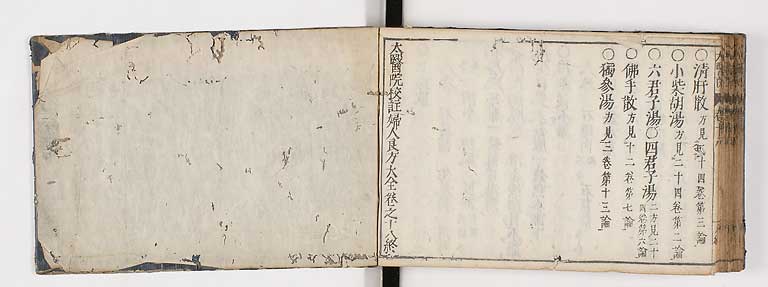 ○清肝散方見二十四卷第三論
○小柴胡湯方見二十四卷第二論
○六君子湯○四君子湯二方見二十四卷第六論
○佛手散方見十二卷第七論
○獨參湯方見三卷第十三論
太醫院校註婦人良方大全卷之十八終